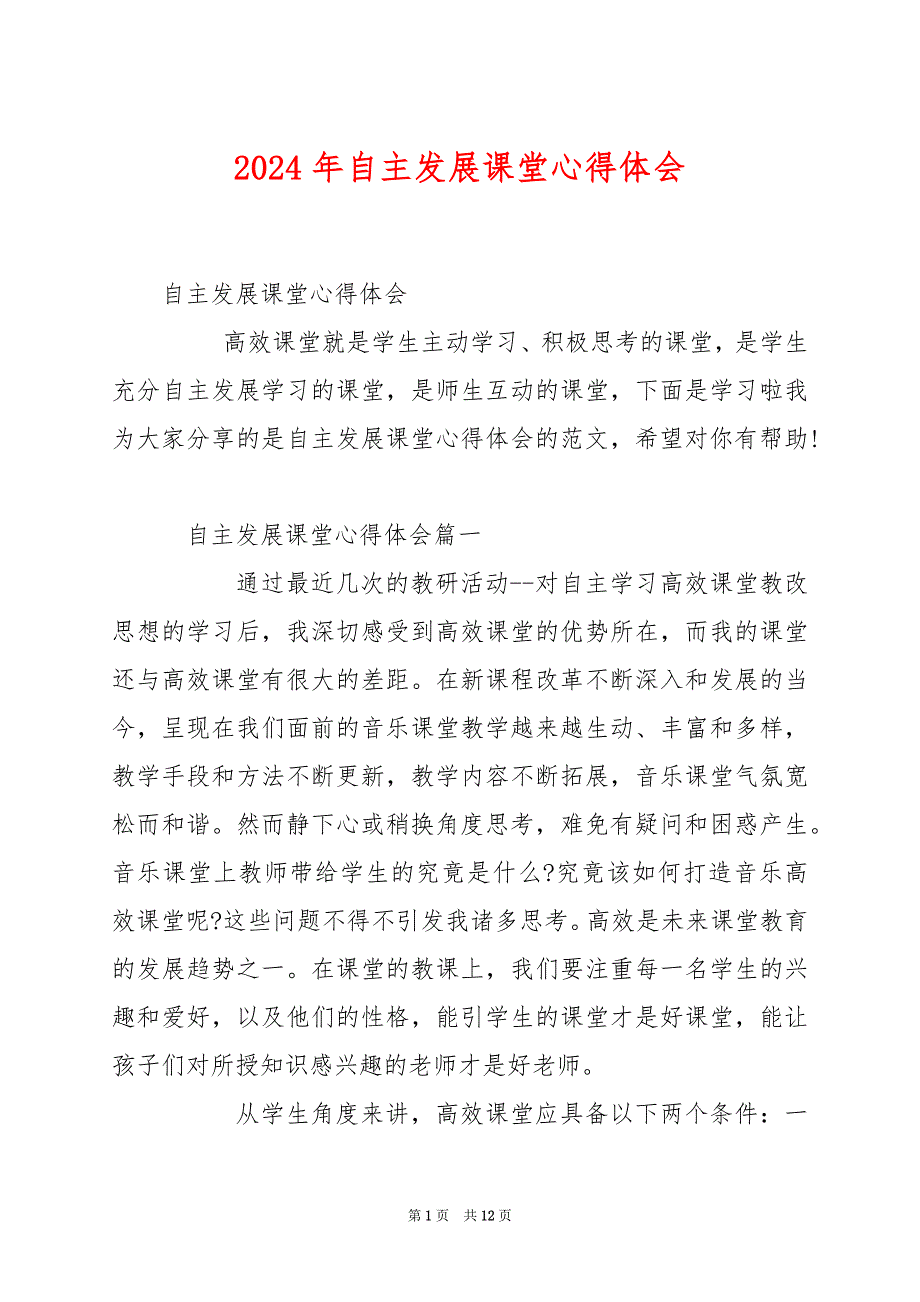 2024 年自主发展课堂心得体会
自主发展课堂心得体会
高效课堂就是学生主动学习、积极思考的课堂，是学生
充分自主发展学习的课堂，是师生互动的课堂，下面是学习啦我
为大家分享的是自主发展课堂心得体会的范文，希望对你有帮助!
自主发展课堂心得体会篇一
通过最近几次的教研活动--对自主学习高效课堂教改
思想的学习后，我深切感受到高效课堂的优势所在，而我的课堂
还与高效课堂有很大的差距。在新课程改革不断深入和发展的当
今，呈现在我们面前的音乐课堂教学越来越生动、丰富和多样，
教学手段和方法不断更新，教学内容不断拓展，音乐课堂气氛宽
松而和谐。然而静下心或稍换角度思考，难免有疑问和困惑产生。
音乐课堂上教师带给学生的究竟是什么?究竟该如何打造音乐高
效课堂呢?这些问题不得不引发我诸多思考。高效是未来课堂教育
的发展趋势之一。在课堂的教课上，我们要注重每一名学生的兴
趣和爱好，以及他们的性格，能引学生的课堂才是好课堂，能让
孩子们对所授知识感兴趣的老师才是好老师。
从学生角度来讲，高效课堂应具备以下两个条件：一
第 1 页 共 12 页